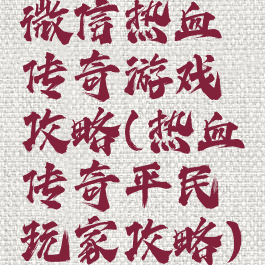 微信热血
传奇游戏
攻略(热血
传奇平民
玩家攻略)